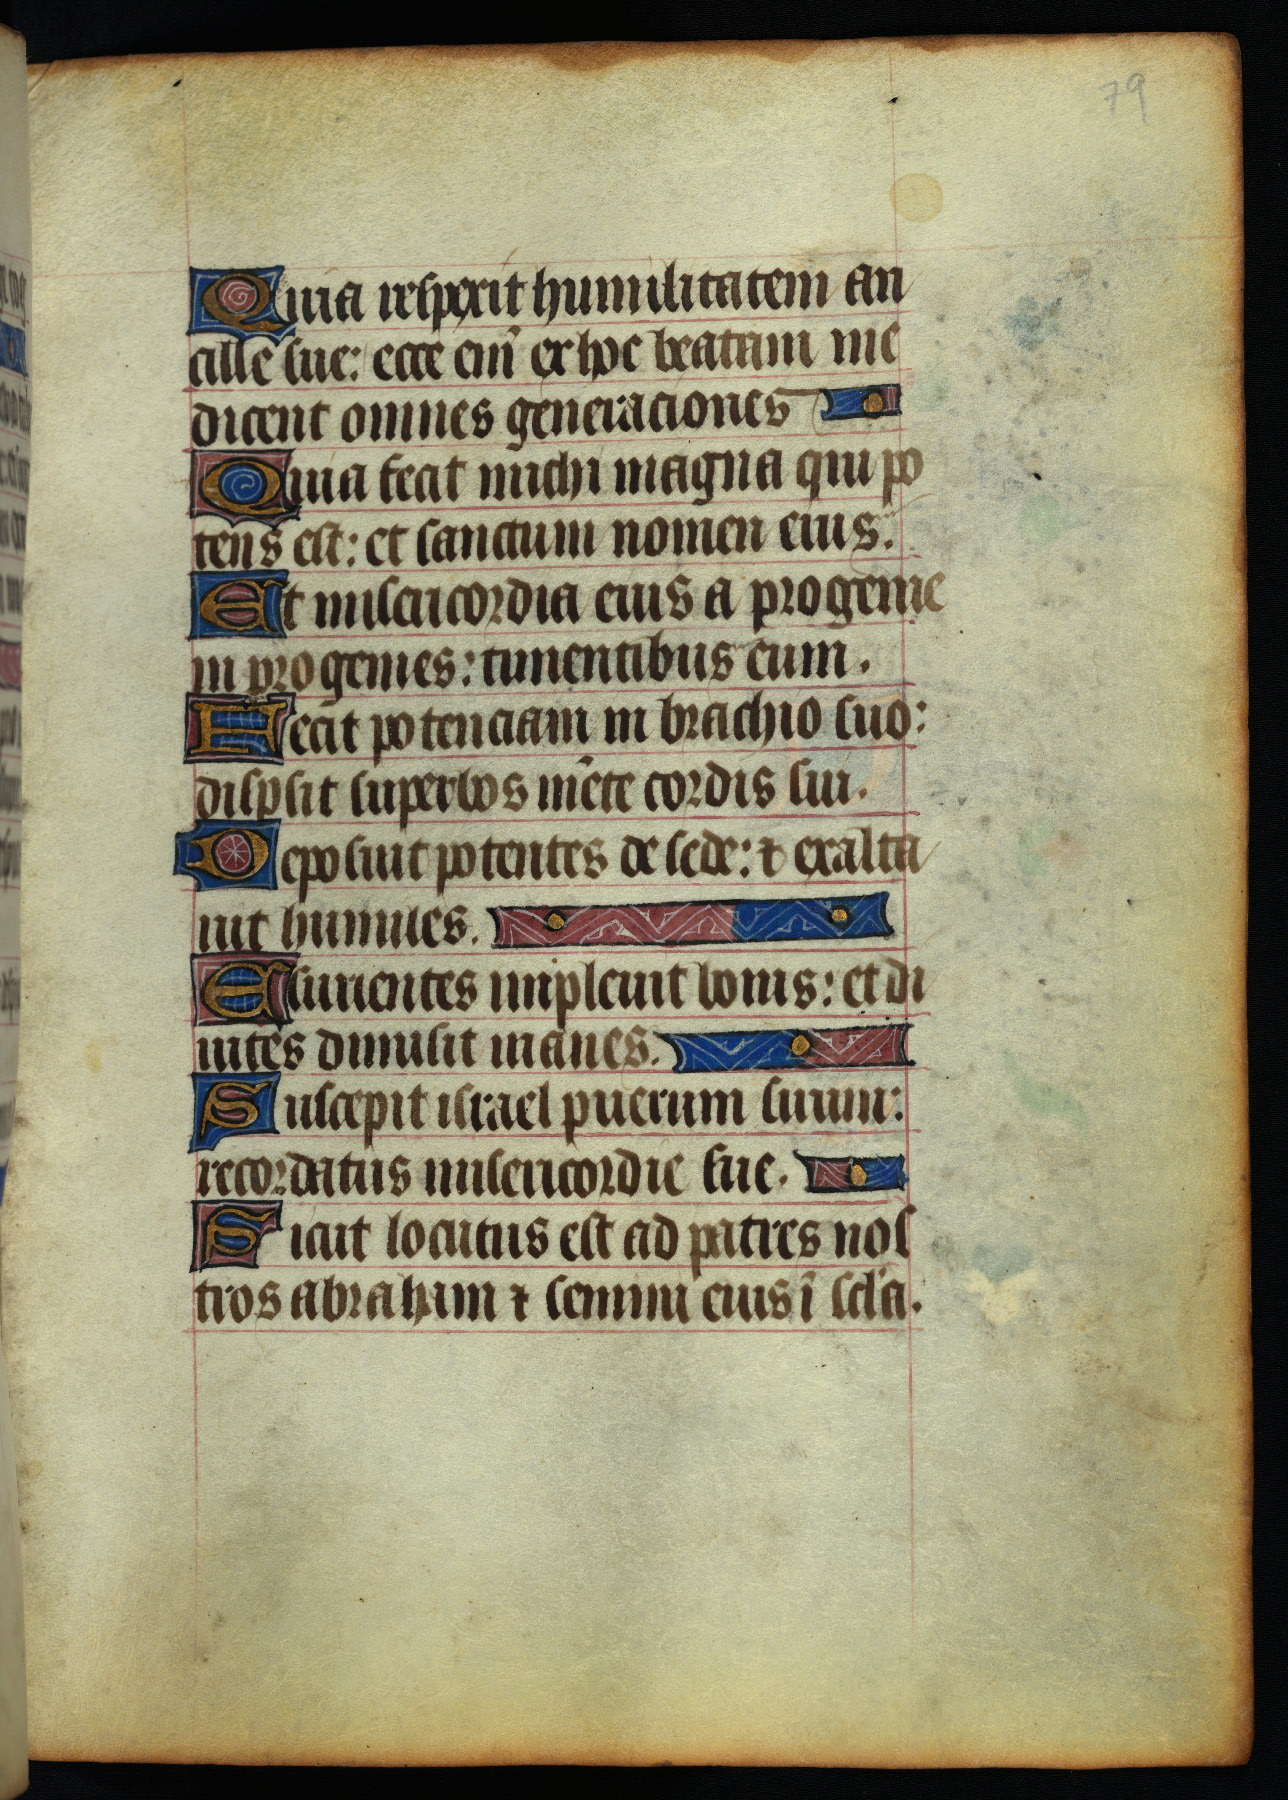 79
Quia respexit humilitatem an
cille sue: ecce eni̅ ex hoc beatam me
dicent omnes generaciones
Quia fecit michi magna qui po
tens est: et sanctum nomen eius.
Et misericordia eius a progenie
in progenies: timentibus eum.
Fecit potenciam in brachio suo:
dispsit superbos me̅te cordis sui.
Deposuit potentes de sede: ⁊ exalta
uit humiles.
Esurientes impleuit bonis: et di
uites dimisit inanes.
Suscepit israel puerum suum:
recordatus misericordie sue.
Sicut locutus est ad patres nos
tros abraham ⁊ semini eius i̅ scl'a.